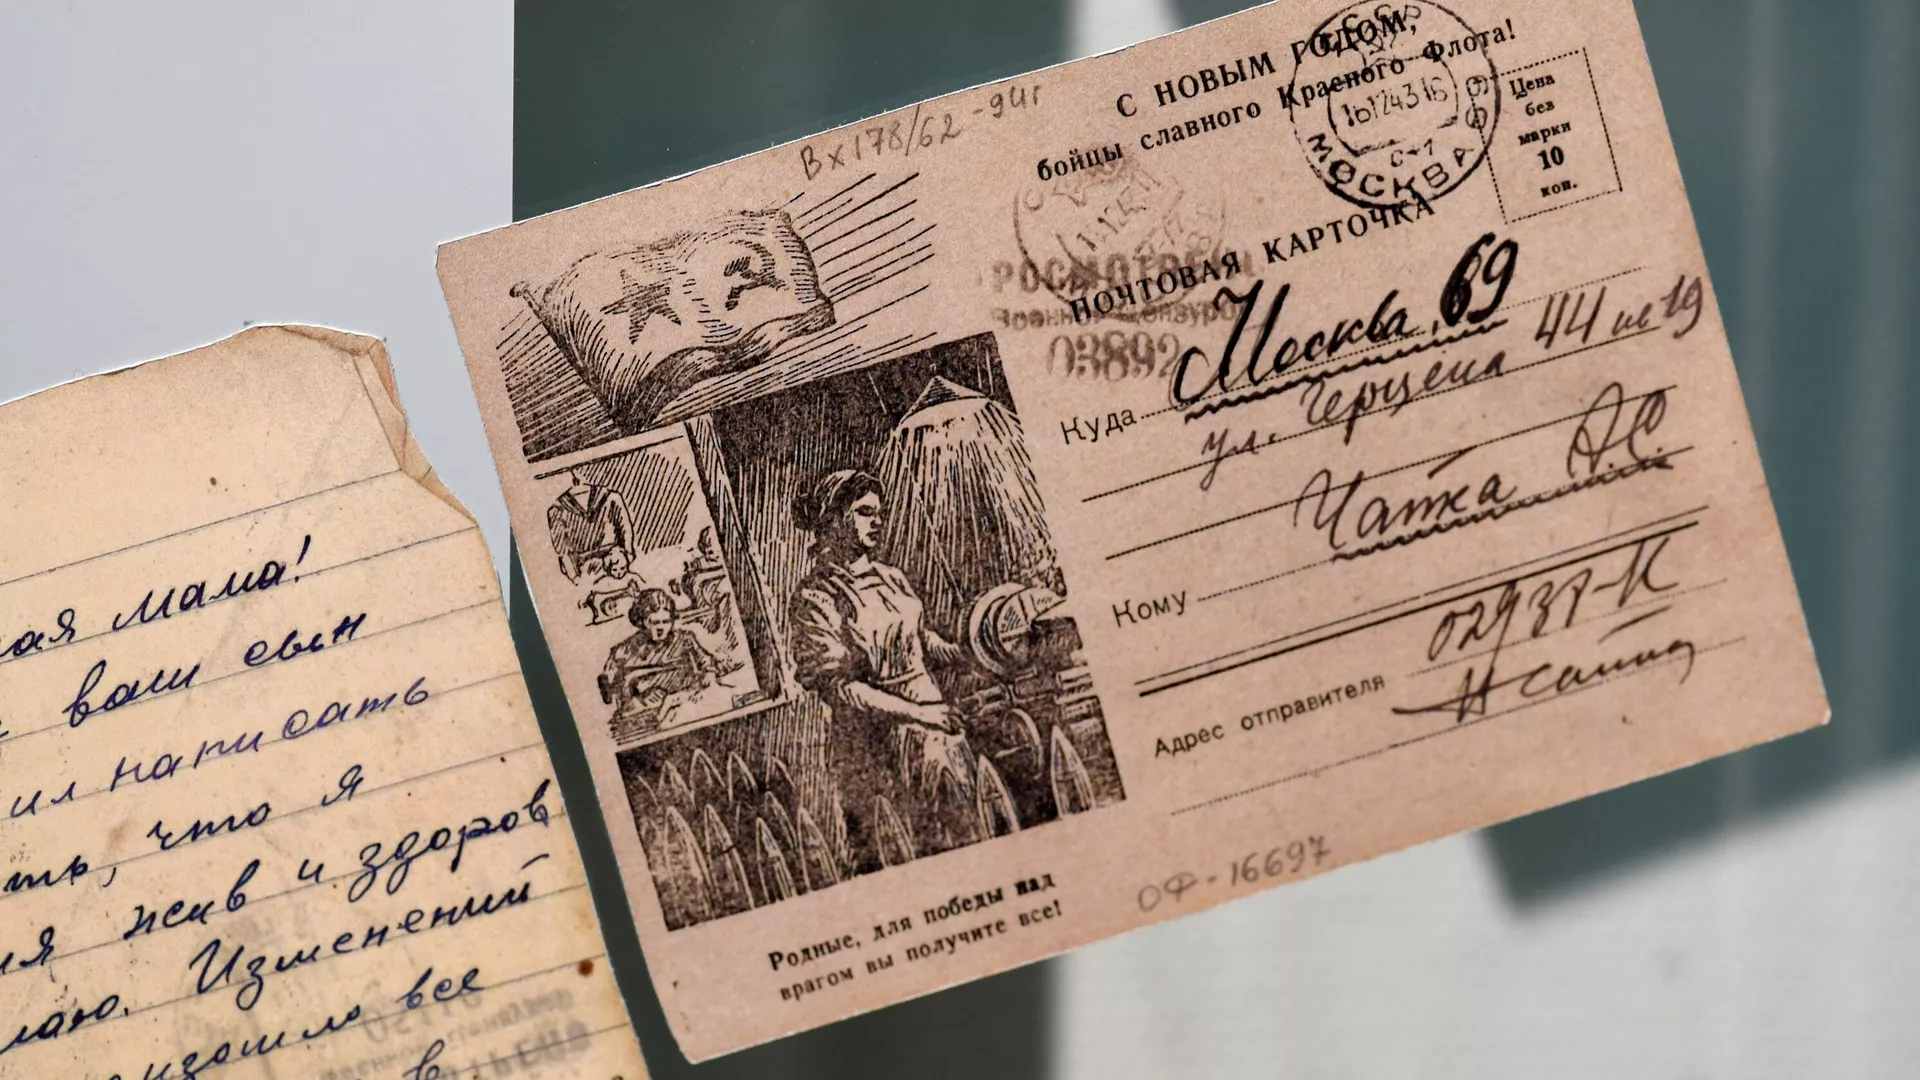 мама!
ваш сын
написать
что я
жив и здоров
Изменений
все
в
Вх 178/62 -94г
С НОВЫМ ГОДОМ,
бойцы славного Красного Флота!
СССР
161243 16
МОСКВА
Цена
без
марки
10
коп.
ПОЧТОВАЯ КАРТОЧКА
Военной Цензурой
03892
Куда Москва, 69
ул. Герцена 44 19
Кому Чапка
Адрес отправителя
ОФ-16697
Родные, для победы над
врагом вы получите все!